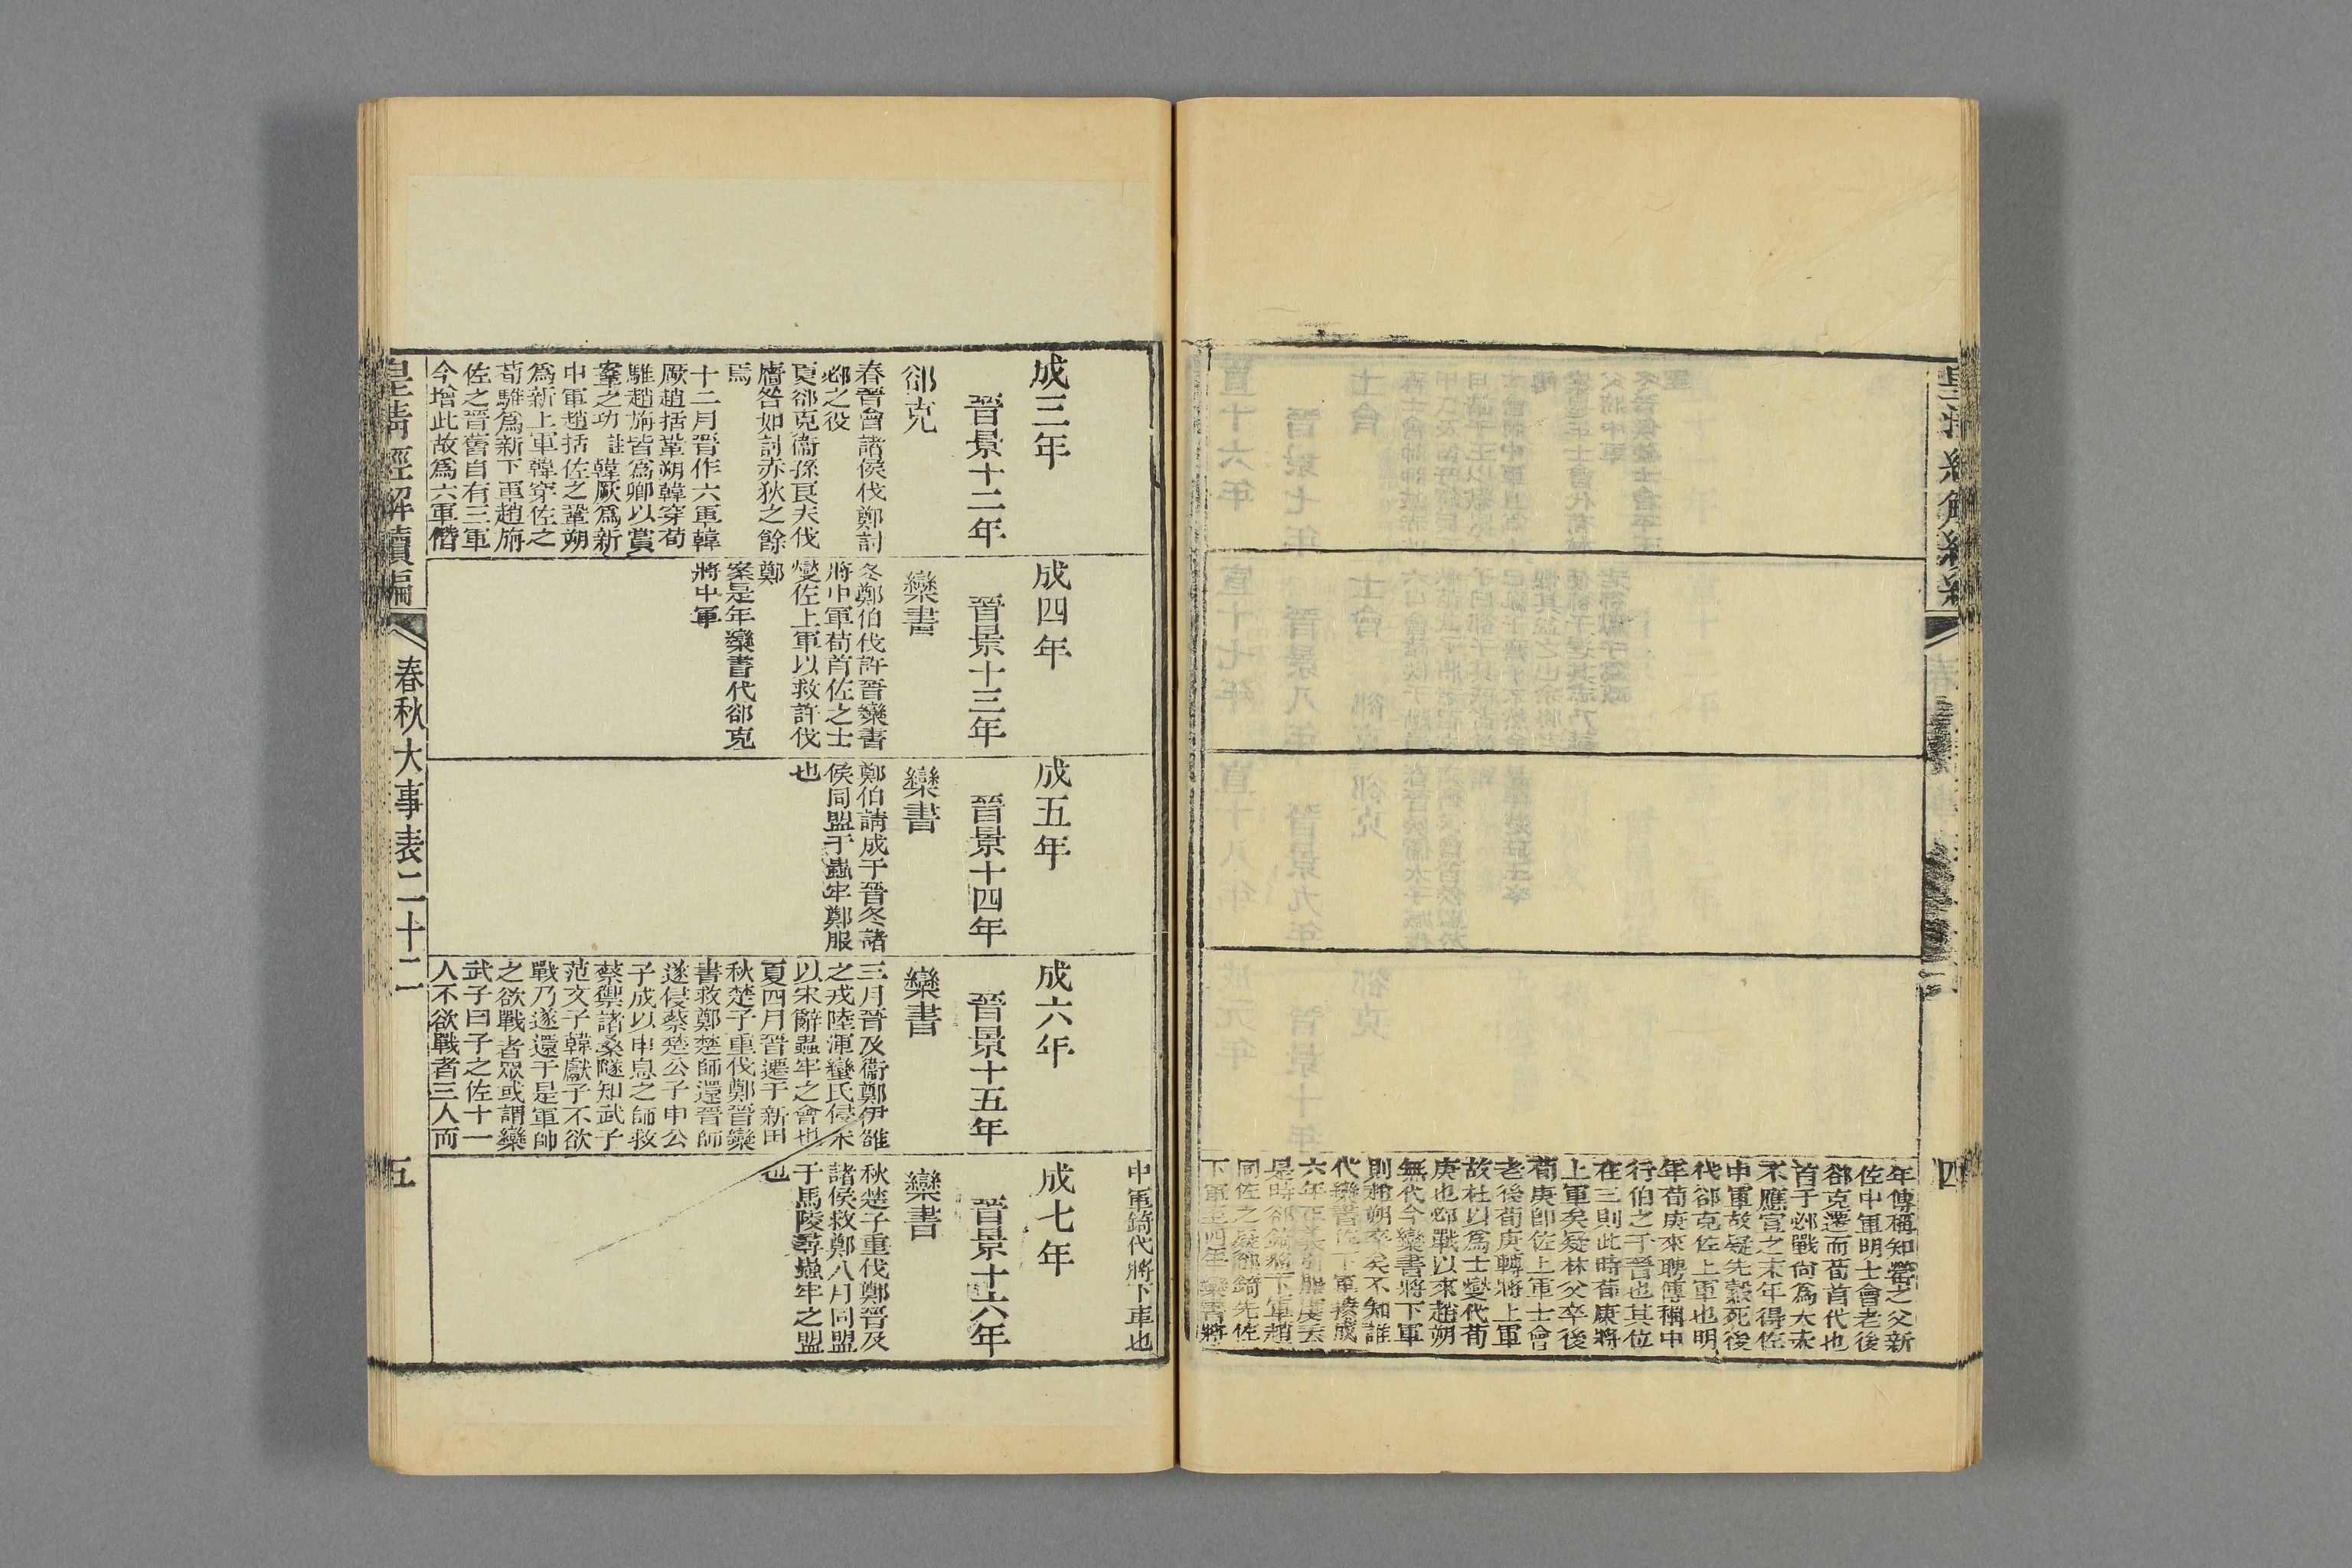 四
年傳稱知罃之父新
佐中軍明士會老後
郤克遷而荀首代也
首于邲戰尙爲大夫
不應宣之末年得佐
中軍故疑先縠死後
代郤克佐上軍也明
年荀庚來聘傳稱中
行伯之于晉也其位
在三則此時荀庚將
上軍矣疑林父卒後
荀庚卽佐上軍士會
老後荀庚轉將上軍
故杜以爲士燮代荀
庚也邲戰以來趙朔
無代今欒書將下軍
則趙朔卒矣不知誰
代欒書佐下軍
六年
是時郤錡將下軍趙
同佐之疑郤錡先佐
下軍至四年欒書將
中軍錡代將下軍也
成三年
晉景十二年
郤克
春晉會諸侯伐鄭討
邲之役
夏郤克衞孫良夫伐
廧咎如討赤狄之餘
焉
十二月晉作六軍韓
厥趙括鞏朔韓穿荀
騅趙旃皆爲卿以賞
鞌之功註韓厥爲新
中軍趙括佐之鞏朔
爲新上軍韓穿佐之
荀騅爲新下軍趙旃
佐之晉舊自有三軍
今增此故爲六軍僭
成四年
晉景十三年
欒書
冬鄭伯伐許晉欒書
將中軍荀首佐之士
燮佐上軍以救許伐
鄭
案是年欒書代郤克
將中軍
成五年
晉景十四年
欒書
鄭伯請成于晉冬諸
侯同盟于蟲牢鄭服
也
成六年
晉景十五年
欒書
三月晉及衞鄭伊雒
之戎陸渾蠻氏侵宋
以宋辭蟲牢之會也
夏四月晉遷于新田
秋楚子重伐鄭晉欒
書救鄭楚師還晉師
遂侵蔡楚公子申公
子成以申息之師救
蔡禦諸桑隧知武子
范文子韓獻子不欲
戰乃遂還于是軍帥
之欲戰者眾或謂欒
武子曰子之佐十一
人不欲戰者三人而
成七年
晉景十六年
欒書
秋楚子重伐鄭晉及
諸侯救鄭八月同盟
于馬陵尋蟲牢之盟
也
皇淸經解續編
春秋大事表二十二
五